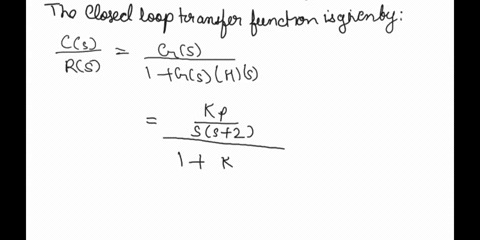 The Closed loop transfer function is given by:
C(s)/R(s) = G(s)/1+G(s)(H)(s)
= Kp/s(s+2)/1+ K